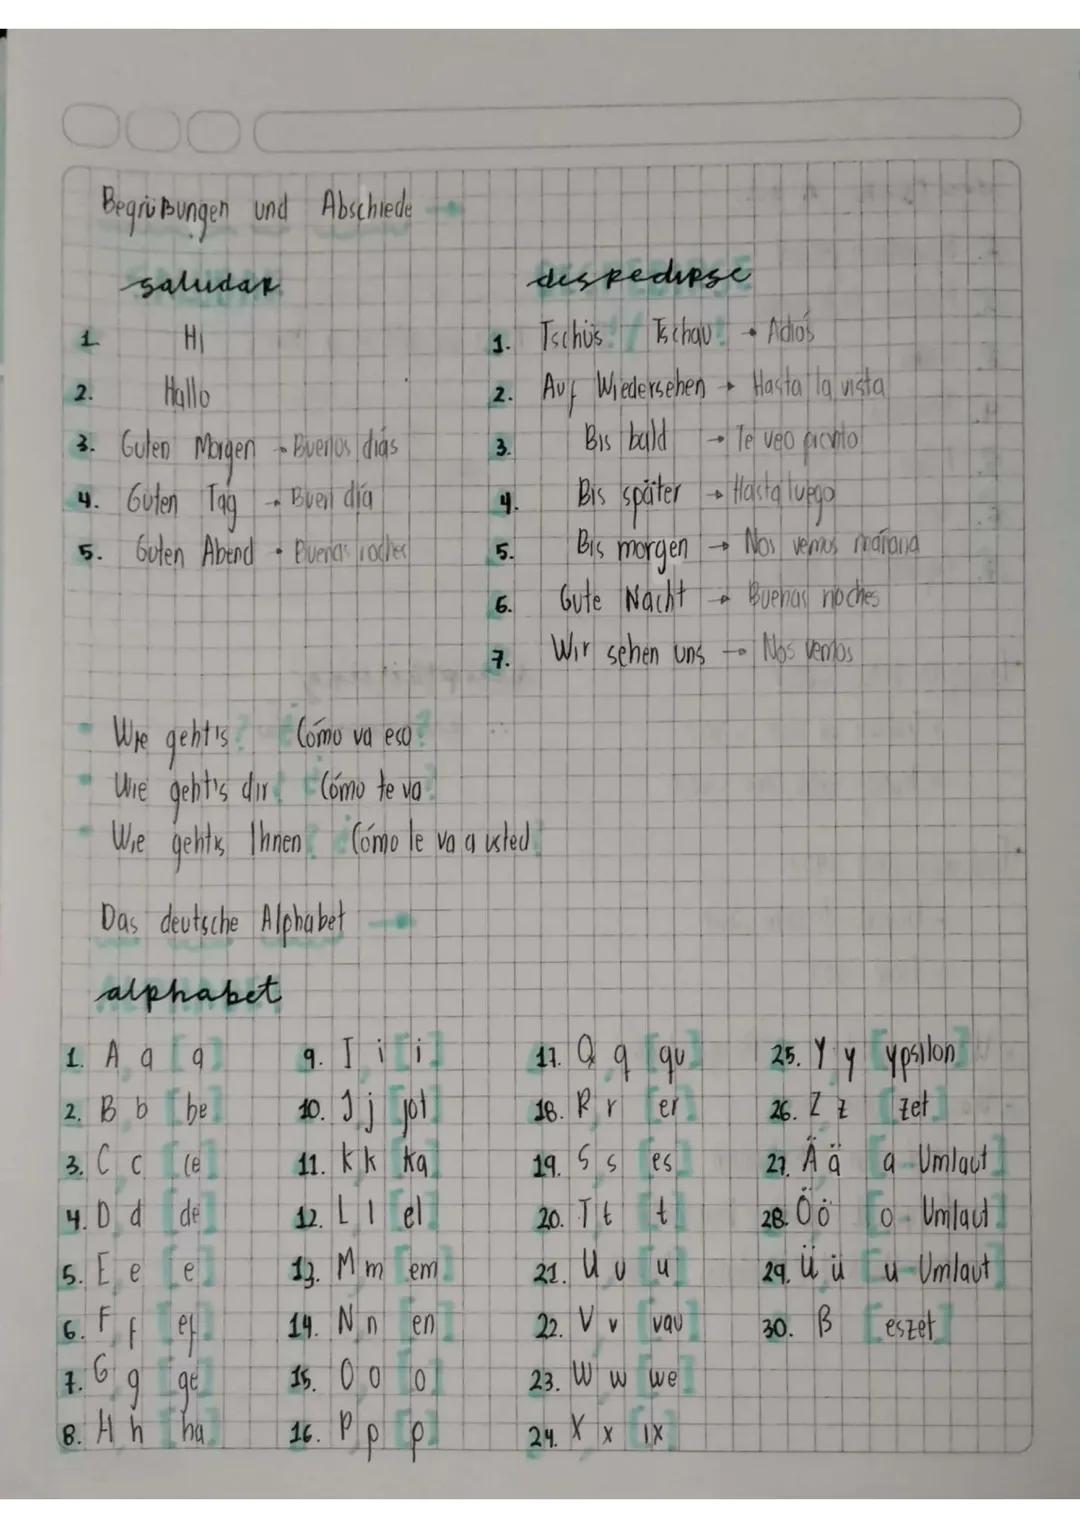 Begrüßungen und Abschiede →
saludar
1. Hi
2. Hallo
3. Guten Morgen → Buenos días
4. Guten Tag → Buen día
5. Guten Abend → Buenas noches
despedirse
1. Tschüs! / Tschau! → Adiós
2. Auf Wiedersehen → Hasta la vista
3. Bis bald → Te veo pronto
4. Bis später → Hasta luego
5. Bis morgen → Nos vemos mañana
6. Gute Nacht → Buenas noches
7. Wir sehen uns → Nos vemos
• Wie geht's? Cómo va eso?
• Wie geht's dir? Cómo te va?
• Wie geht's Ihnen? Cómo le va a usted?
Das deutsche Alphabet →
alphabet
1. A a [a]
2. B b [be]
3. C c [ce]
4. D d [de]
5. E e [e]
6. F f [ef]
7. G g [ge]
8. H h [ha]
9. I i [i]
10. J j [jot]
11. K k [ka]
12. L l [el]
13. M m [em]
14. N n [en]
15. O o [o]
16. P p [p]
17. Q q [qu]
18. R r [er]
19. S s [es]
20. T t [t]
21. U u [u]
22. V v [vau]
23. W w [we]
24. X x [ix]
25. Y y [ypsilon]
26. Z z [zet]
27. Ä ä [a-Umlaut]
28. Ö ö [o-Umlaut]
29. Ü ü [u-Umlaut]
30. ß [eszet]